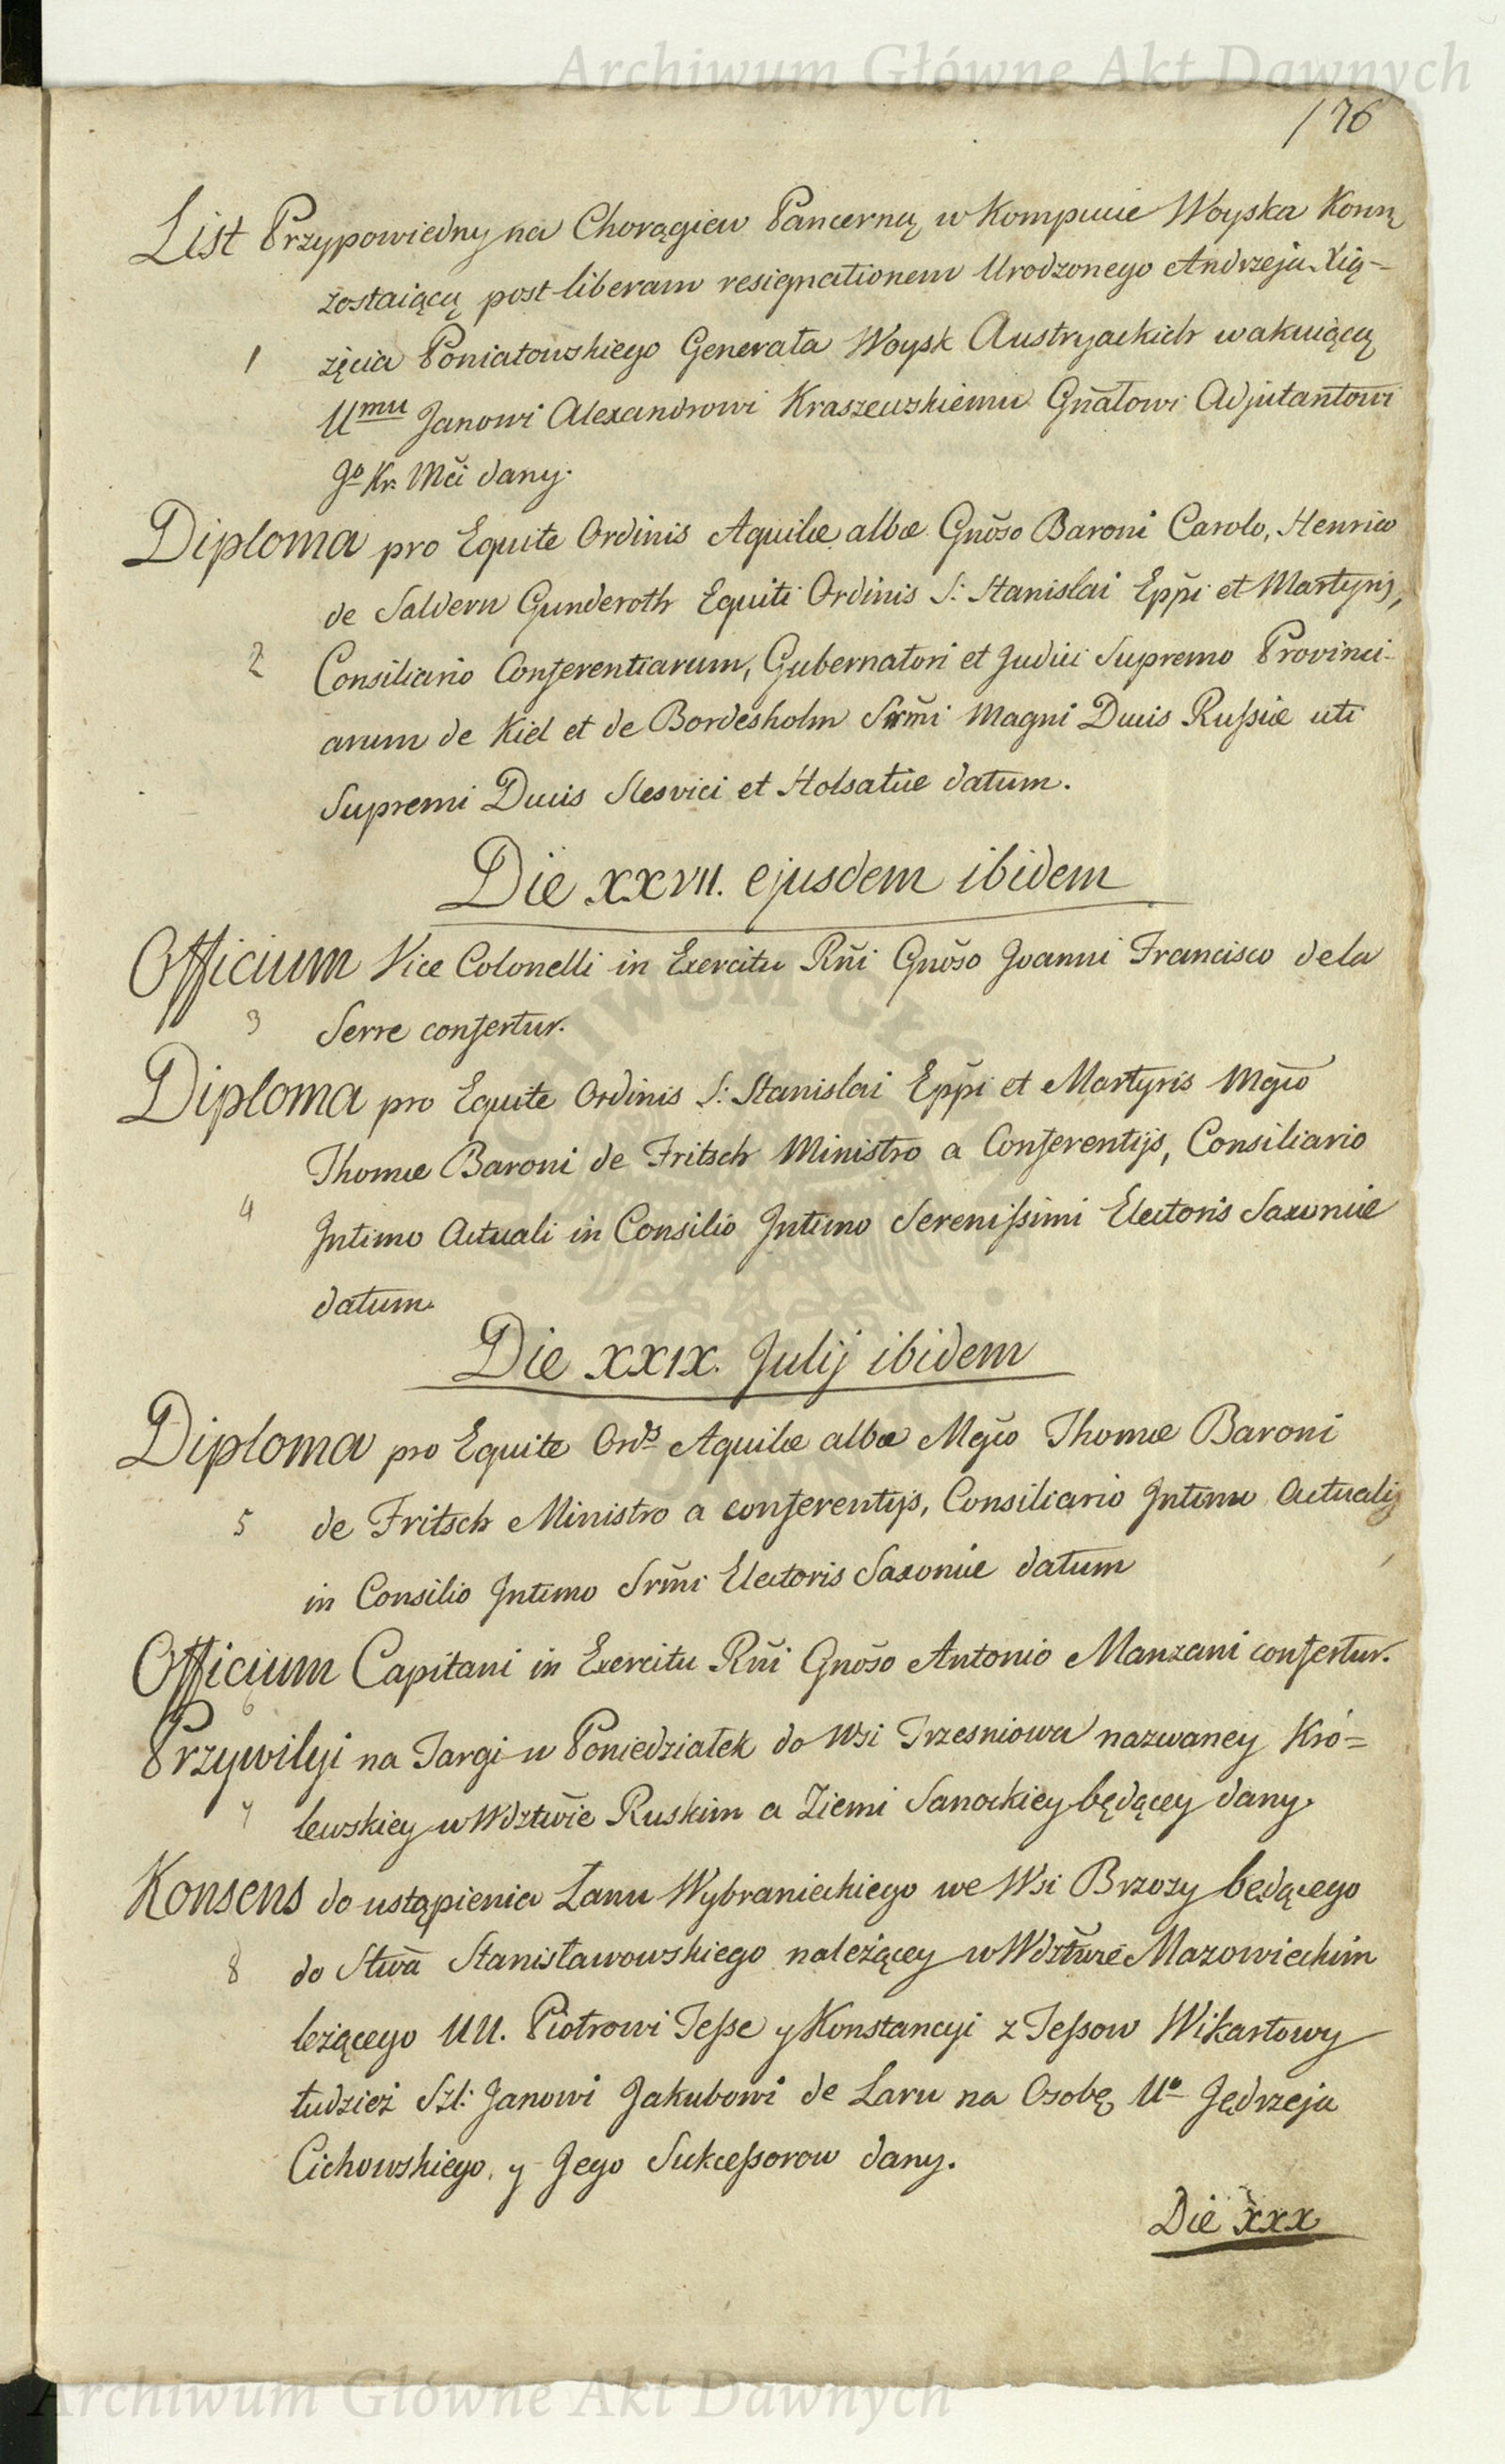 Archiwum Główne Akt Dawnych
176
List Przypowiedny na Chorągiew Pancerną w Kompucie Woyska Konną
zostaiącą post liberam resignationem Urodzonego Andrzeja Xią-
1 zęcia Poniatowskiego Generała Woysk Austryackich wakuiącą
Umu Janowi Alexandrowi Kraszewskiemu Gñałowi Adjutantowi
Jo Kr. Mci dany.
Diploma pro Equite Ordinis Aquilæ albæ Gnõso Baroni Carolo, Henrico
de Saldern Gunderoth Equiti Ordinis S: Stanislai Eppi et Martyris,
2 Consiliario Conferentiarum, Gubernatori et Judici Supremo Provinci-
arum de Kiel et de Bordesholm Srmi Magni Ducis Russiæ uti
Supremi Ducis Slesvici et Holsatiæ datum.
Die XXVII. ejusdem ibidem
Officium Vice Colonelli in Exercitu Rñi Gnõso Joanni Francisco dela
3 Serre confertur.
Diploma pro Equite Ordinis S: Stanislai Eppi et Martyris Mgco
Thomæ Baroni de Fritsch Ministro a Conferentijs, Consiliario
4 Intimo Actuali in Consilio Intimo Serenissimi Electoris Saxoniæ
datum.
Die XXIX. Julij ibidem
Diploma pro Equite Ords Aquilæ albæ Mgco Thomæ Baroni
5 de Fritsch Ministro a conferentijs, Consiliario Intimo Actuali
in Consilio Intimo Srmi Electoris Saxoniæ datum
Officium Capitani in Exercitu Rñi Gnõso Antonio Manzani confertur.
6
Przywilyi na Targi w Poniedziałek do Wsi Trzesniowa nazwaney Kró=
7 lewskiey w Wdztwie Ruskim a Ziemi Sanockiey będącey dany.
Konsens do ustąpienia Łanu Wybranieckiego we Wsi Brzozy będącego
8 do Stwa Stanisławowskiego należącey w Wdztwie Mazowieckim
leżącego UU. Piotrowi Jesse y Konstancyi z Jessow Wikartowy
tudzież Szl: Janowi Jakubowi de Laru na Osobę Uo Jędrzeja
Cichowskiego, y Jego Sukcessorow dany.
Die xxx
Archiwum Główne Akt Dawnych